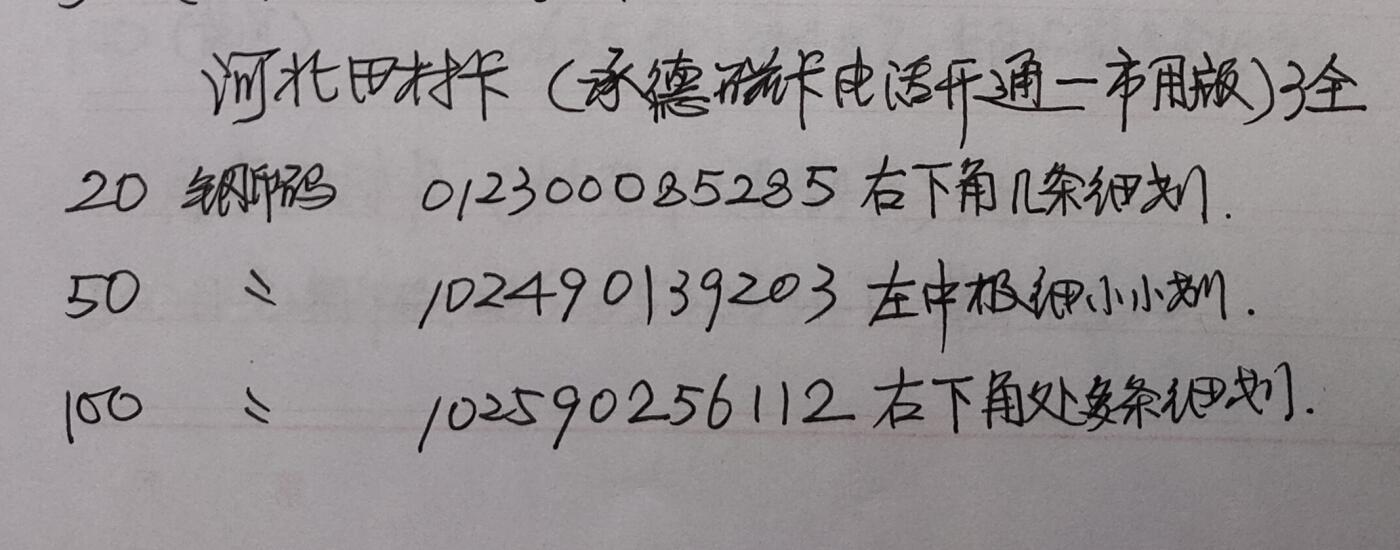 河北田村卡（承德磁卡电话开通一市用版）3全
20 钢印码 012300085285 右下角几条细划.
50 〃 102490139203 左中极细小小划.
100 〃 102590256112 右下角处多条细划.